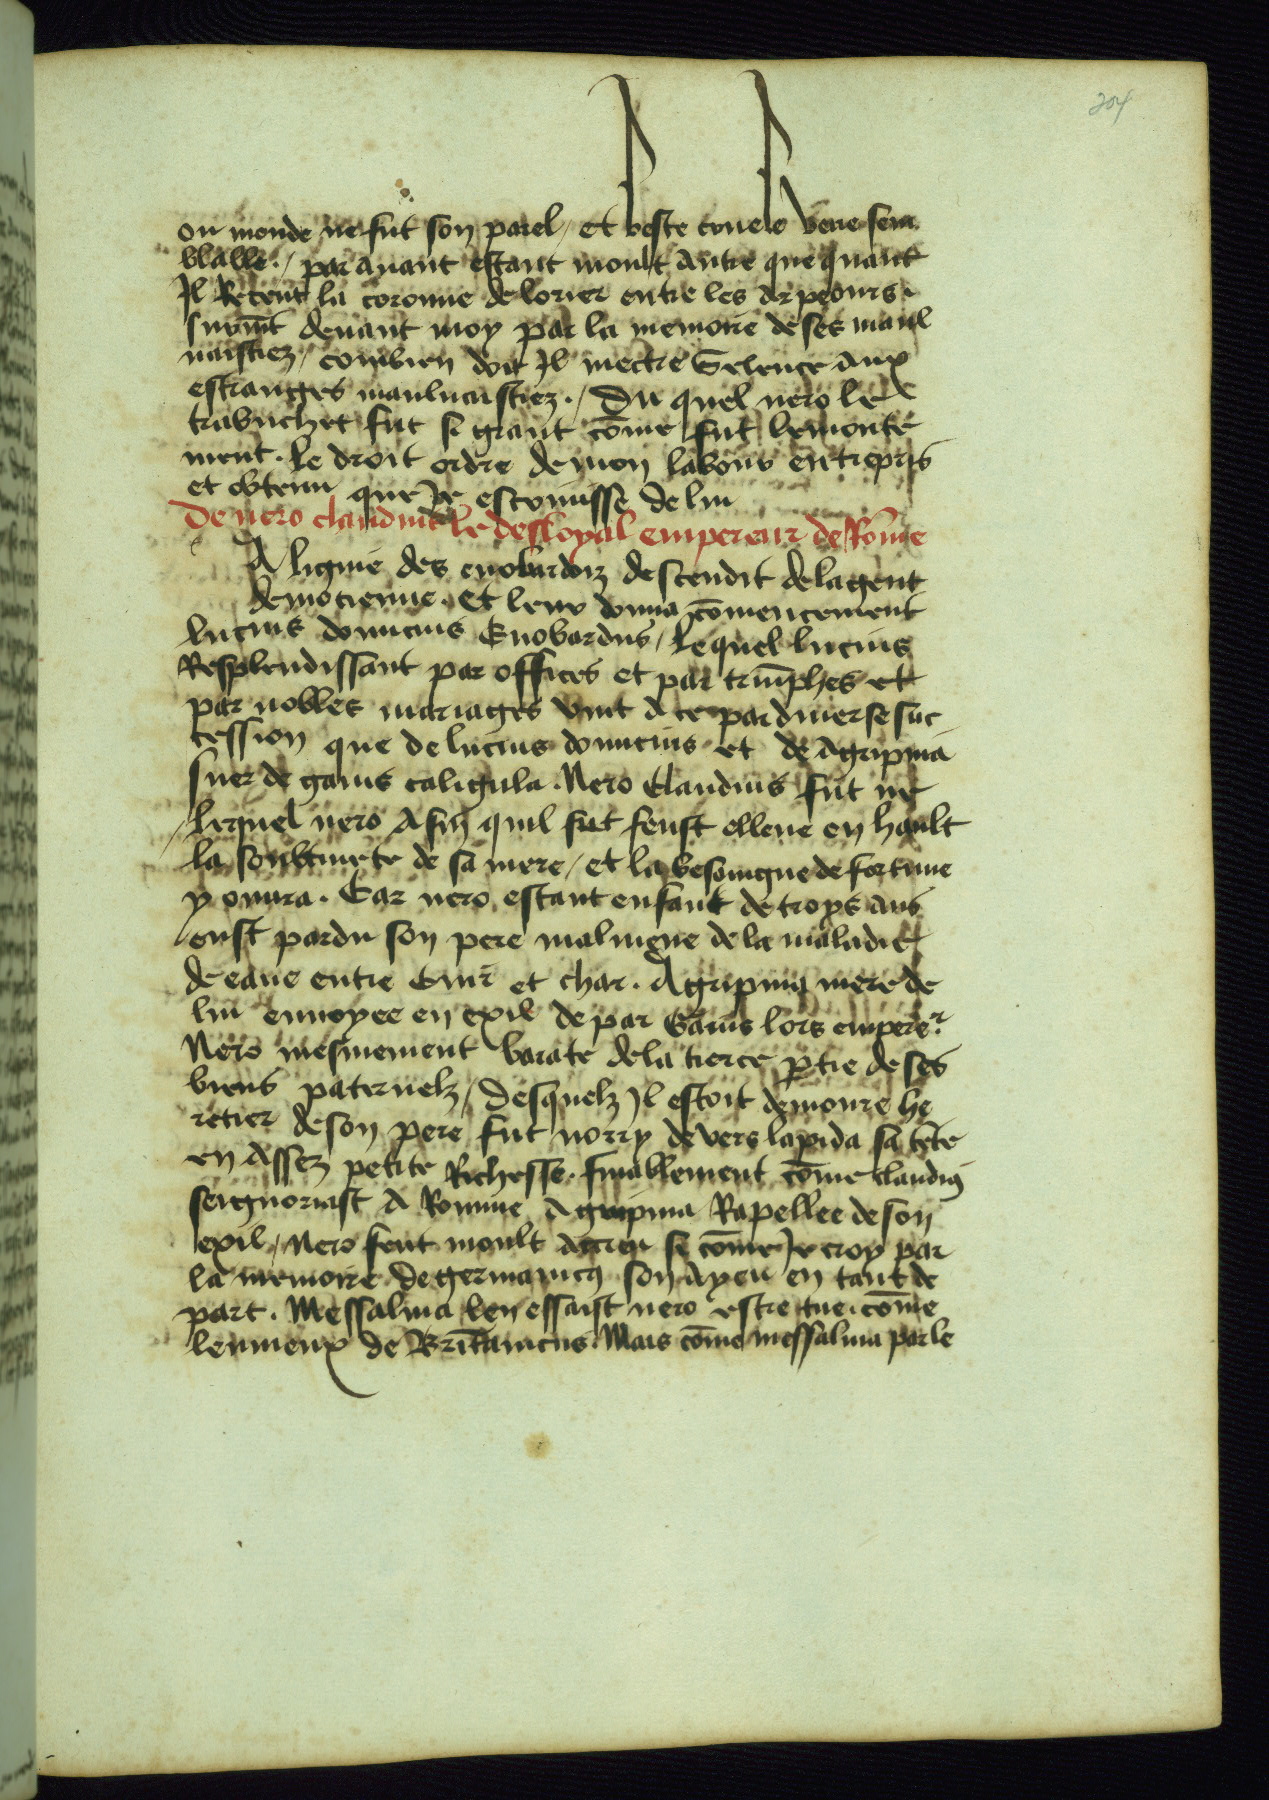 204
ou monde ne fut son parel / et beste cruele vene sem
blable ./ par avant estant moult autre que quant
Il Receut la coronne de lorier entre les arpeours .
survint devant moy par la memoire de ses maul
naistiez / combien doit Il mectre Selence aux
estranges maulvaistiez ./ Du quel nero le
trabuchet fut si grant cōme fut le monte
ment . le droit ordre de mon labour entrepris
et obtenu que Je escrivisse de lui
De nero claudius le desloyal empereur de Rōme
A lignie des enobardoiz descendit de la gent
democienne . Et leur donna cōmencement
lucius domicius Enobardus / lequel lucius
Resplendissant par offices et par triūphes et
par nobles mariages vint a ce par diverse suc
cession que de lucius domicius et de Agripina
suer de gaius caligula . Nero Claudius fut ne
/ lequel nero Afin quil fut feust esleve en hault
la soubtivete de sa mere / et la besoingne de fortune
y ouvra . Car nero estant enfant de troys ans
eust pardu son pere malingne de la maladie
de eaue entre cuir et char . Agripina mere de
lui envoyee en exil de par Gaius lors emperer
Nero mesmement barate de la tierce ptie de ses
biens paternelz / desquelz Il estoit demoure he
retier de son pere fut norry devers lapida sa tēte
en Assez petite Richesse . finablement cōme claudiꝰ
seignoriast A Romme Agripina Rapellee de son
exil / Nero feut moult acreu si cōme Je croy par
la memoire de germanicꝰ son ayeu en tant de
part . Messalina len essaist nero estre tue . cōme
lennieux de Britanicus . Mais cōme messalina par le